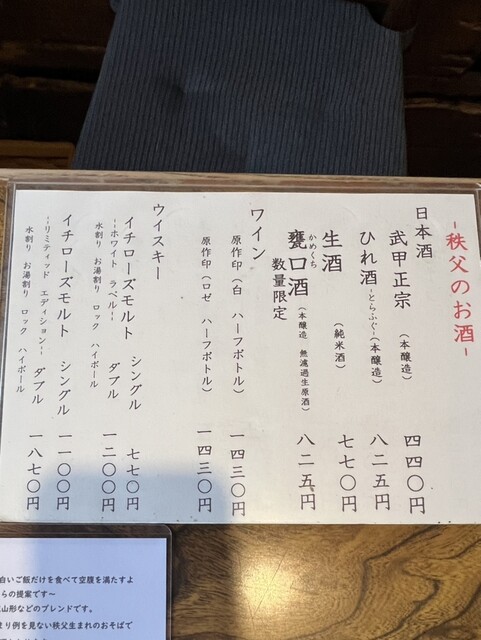 -秩父のお酒-
日本酒
武甲正宗 (本醸造) 四四〇円
ひれ酒 -とらふぐ- (本醸造) 八二五円
生酒 (純米酒) 七七〇円
かめくち
甕口酒 (本醸造 無濾過生原酒) 八二五円
数量限定
ワイン
原作印(白 ハーフボトル) 一四三〇円
原作印(ロゼ ハーフボトル) 一四三〇円
ウイスキー
イチローズモルト シングル 七七〇円
-ホワイト ラベル- ダブル 一二〇〇円
水割り お湯割り ロック ハイボール
イチローズモルト シングル 一一〇〇円
-リミティッド エディション- ダブル 一八七〇円
水割り お湯割り ロック ハイボール
白いご飯だけを食べて空腹を満たすよ
らの提案です〜
山形などのブレンドです。
まり例を見ない秩父生まれのおそばで